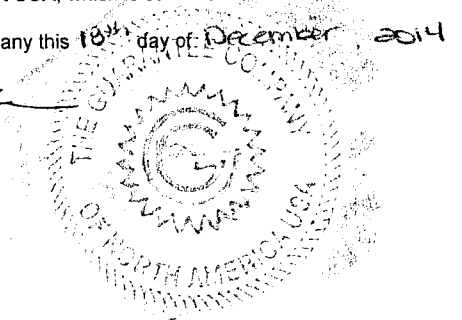 any this 18th day of December, 2014
THE GUARANTEE COMPANY
OF NORTH AMERICA USA